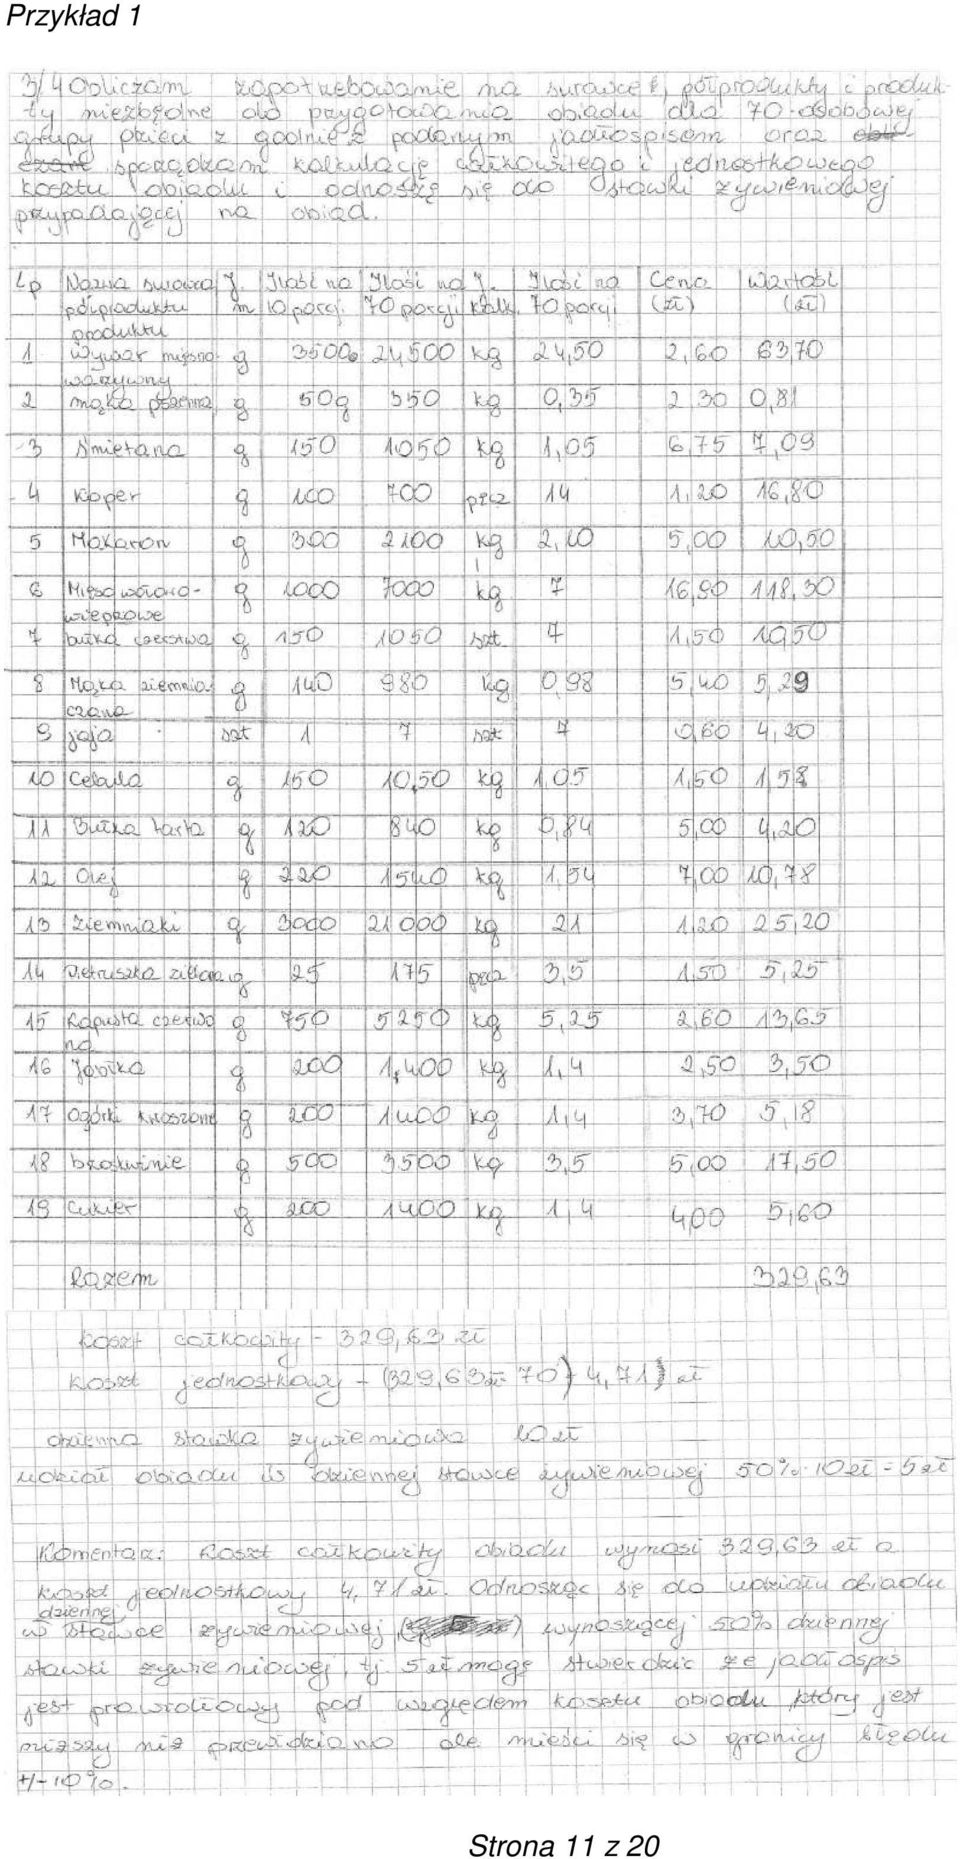 Przykład 1
3/4 Obliczam zapotrzebowanie na surowce, półprodukty i produk-
ty niezbędne do przygotowania obiadu dla 70-osobowej
grupy dzieci z godnie z podanym jadłospisem oraz
sporządzam kalkulację całkowitego i jednostkowego
kosztu obiadu i odnoszę się do stawki żywieniowej
przypadającej na obiad.
Lp Nazwa surowca J. Ilość na Ilość na J. Ilość na Cena Wartość
półproduktu m 10 porcj. 70 porcji kalk. 70 porcji (zł) (zł)
produktu
1 Wywar mięsno g 3500 24,500 kg 24,50 2,60 63,70
warzywny
2 mąka pszenna g 50g 350 kg 0,35 2,30 0,81
3 Śmietana g 150 1050 kg 1,05 6,75 7,09
4 Koper g 100 700 pęcz 14 1,20 16,80
5 Makaron g 300 2100 kg 2,10 5,00 10,50
6 Mięso wołowo- g 1000 7000 kg 7 16,90 118,30
wieprzowe
7 bułka czerstwa g 150 1050 szt 7 1,50 10,50
8 Mąka ziemnia g 140 980 kg 0,98 5,40 5,29
czana
9 jaja szt 1 7 szt 7 0,60 4,20
10 Cebula g 150 10,50 kg 1,05 1,50 1,58
11 Bułka tarta g 120 840 kg 0,84 5,00 4,20
12 Olej g 220 1540 kg 1,54 7,00 10,78
13 Ziemniaki g 3000 21 000 kg 21 1,20 25,20
14 Pietruszka zielona g 25 175 pęcz 3,5 1,50 5,25
15 Kapusta czerwo g 750 5250 kg 5,25 2,60 13,65
na
16 Jabłka g 200 1,400 kg 1,4 2,50 3,50
17 Ogórki kwaszone g 200 1400 kg 1,4 3,70 5,18
18 brzoskwinie g 500 3500 kg 3,5 5,00 17,50
19 Cukier g 200 1400 kg 1,4 4,00 5,60
Razem 329,63
Koszt całkowity - 329,63 zł
Koszt jednostkowy - (329,63 zł 70) 4,71 zł
dzienna stawka żywieniowa 10 zł
udział obiadu w dziennej stawce żywieniowej 50% · 10 zł = 5 zł
Komentarz: Koszt całkowity obiadu wynosi 329,63 zł a
koszt jednostkowy 4,71 zł. Odnosząc się do udziału obiadu
dziennej
w stawce żywieniowej wynoszącej 50% dziennej
stawki żywieniowej, tj. 5 zł mogę stwierdzić że jadłospis
jest prawidłowy pod względem kosztu obiadu który jest
niższy niż przewidziano ale mieści się w granicy błędu
+/- 10%.
Strona 11 z 20